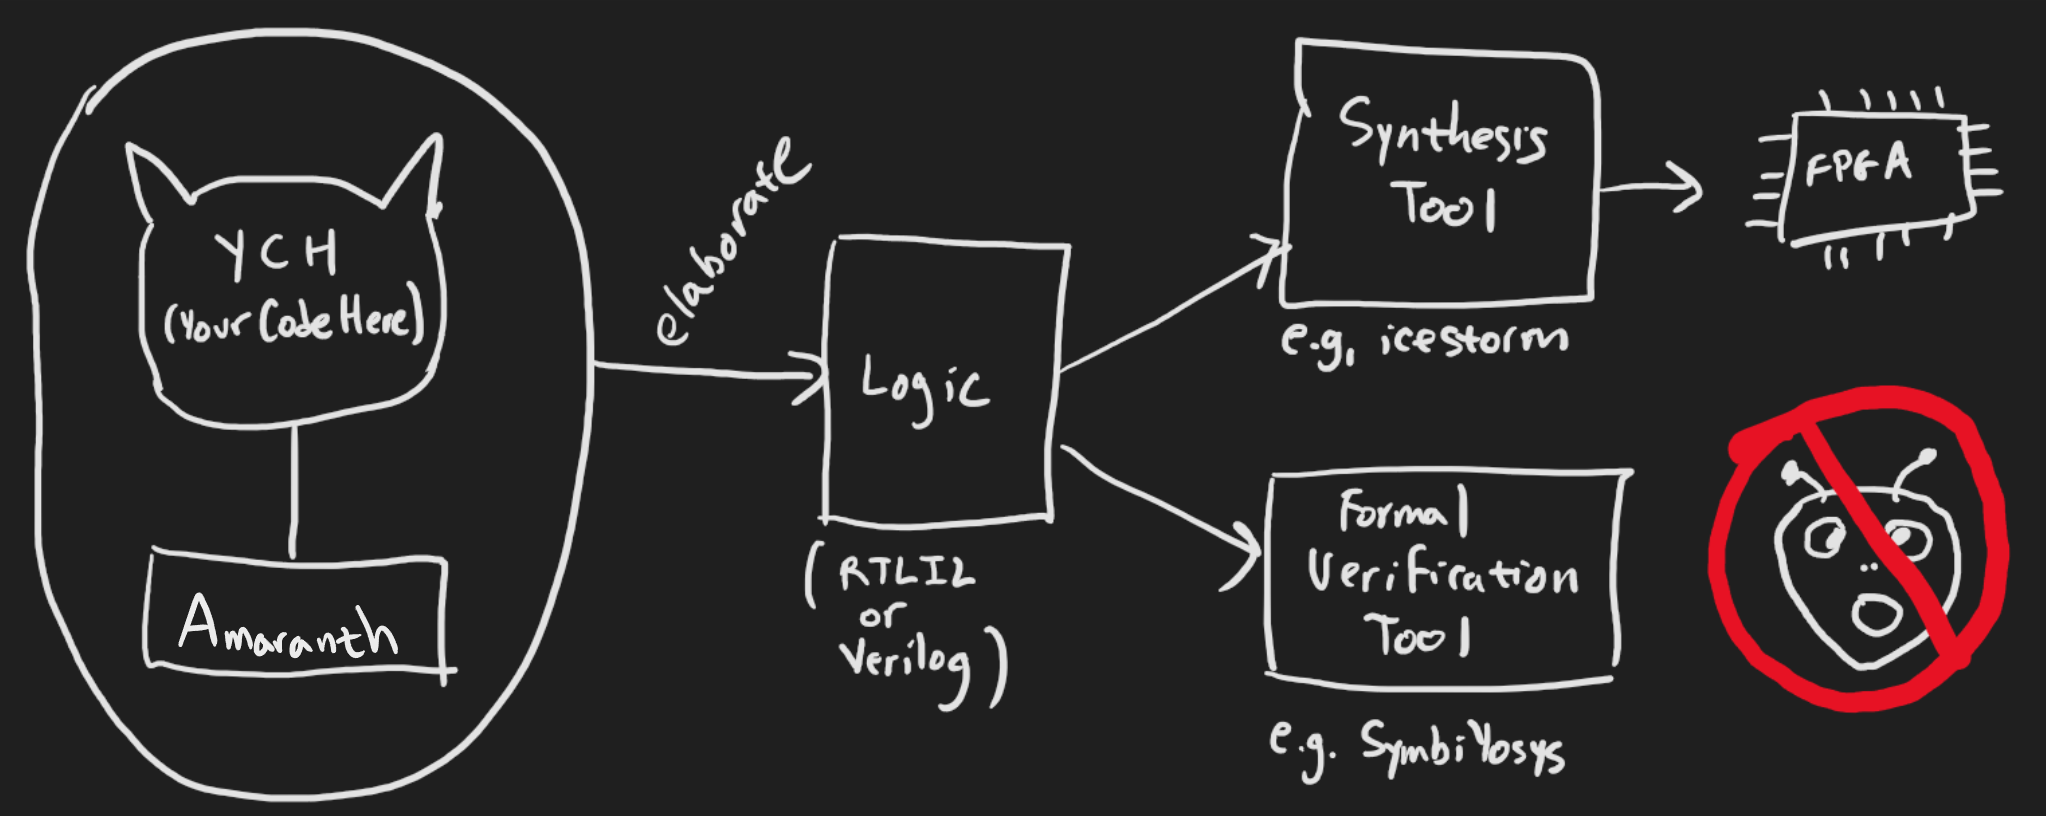 YCH
(Your Code Here)
Amaranth
elaborate
Logic
(RTLIL
or
Verilog)
Synthesis
Tool
e.g, icestorm
FPGA
Formal
Verification
Tool
e.g. SymbiYosys